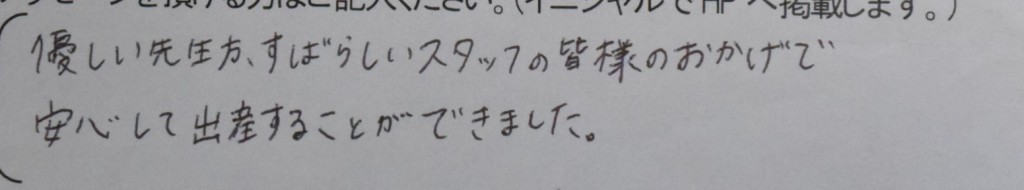 セージを頂ける方はご記入ください。(イニシャルでHPへ掲載します。)
優しい先生方、すばらしいスタッフの皆様のおかげで
安心して出産することができました。